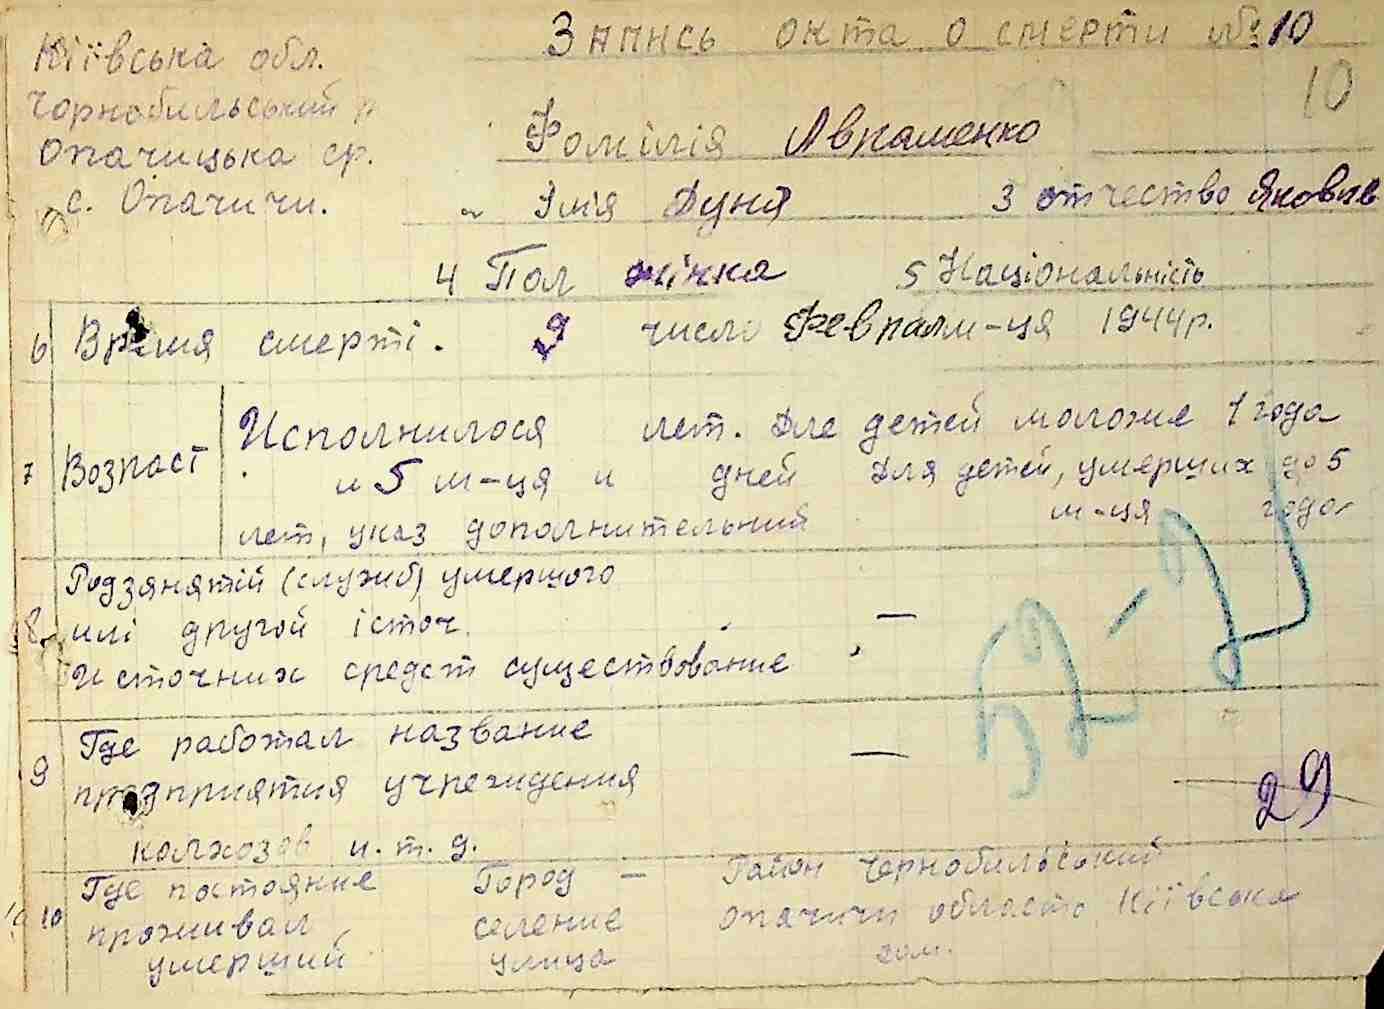 Київська обл.
Чорнобильський р
Опачицька ср.
с. Опачичи.
Запись окта о смерти № 10
10
Фомілія Авраменко
Імія Дуня 3 отчество Яковлв
4 Пол жінка 5 Національність
6 Время смерті. 9 число Февралм-ця 1944р.
7 Возраст
Исполнилося лет. Для детей моложе 1 года
и 5 м-ця и дней Для детей, умерших до 5
лет, указ дополнительний м-ця года
8 Родзянятій (служб) умершого
илі другой істоч.
Источник средст существование
—
9 Где работал название
предприятия учреждения
колхозав и.т.д.
—
52-2
29
10 Где постояние проживал умерший
Город — Район Чернобильський
селение Опачичи область Київська
улица дом.